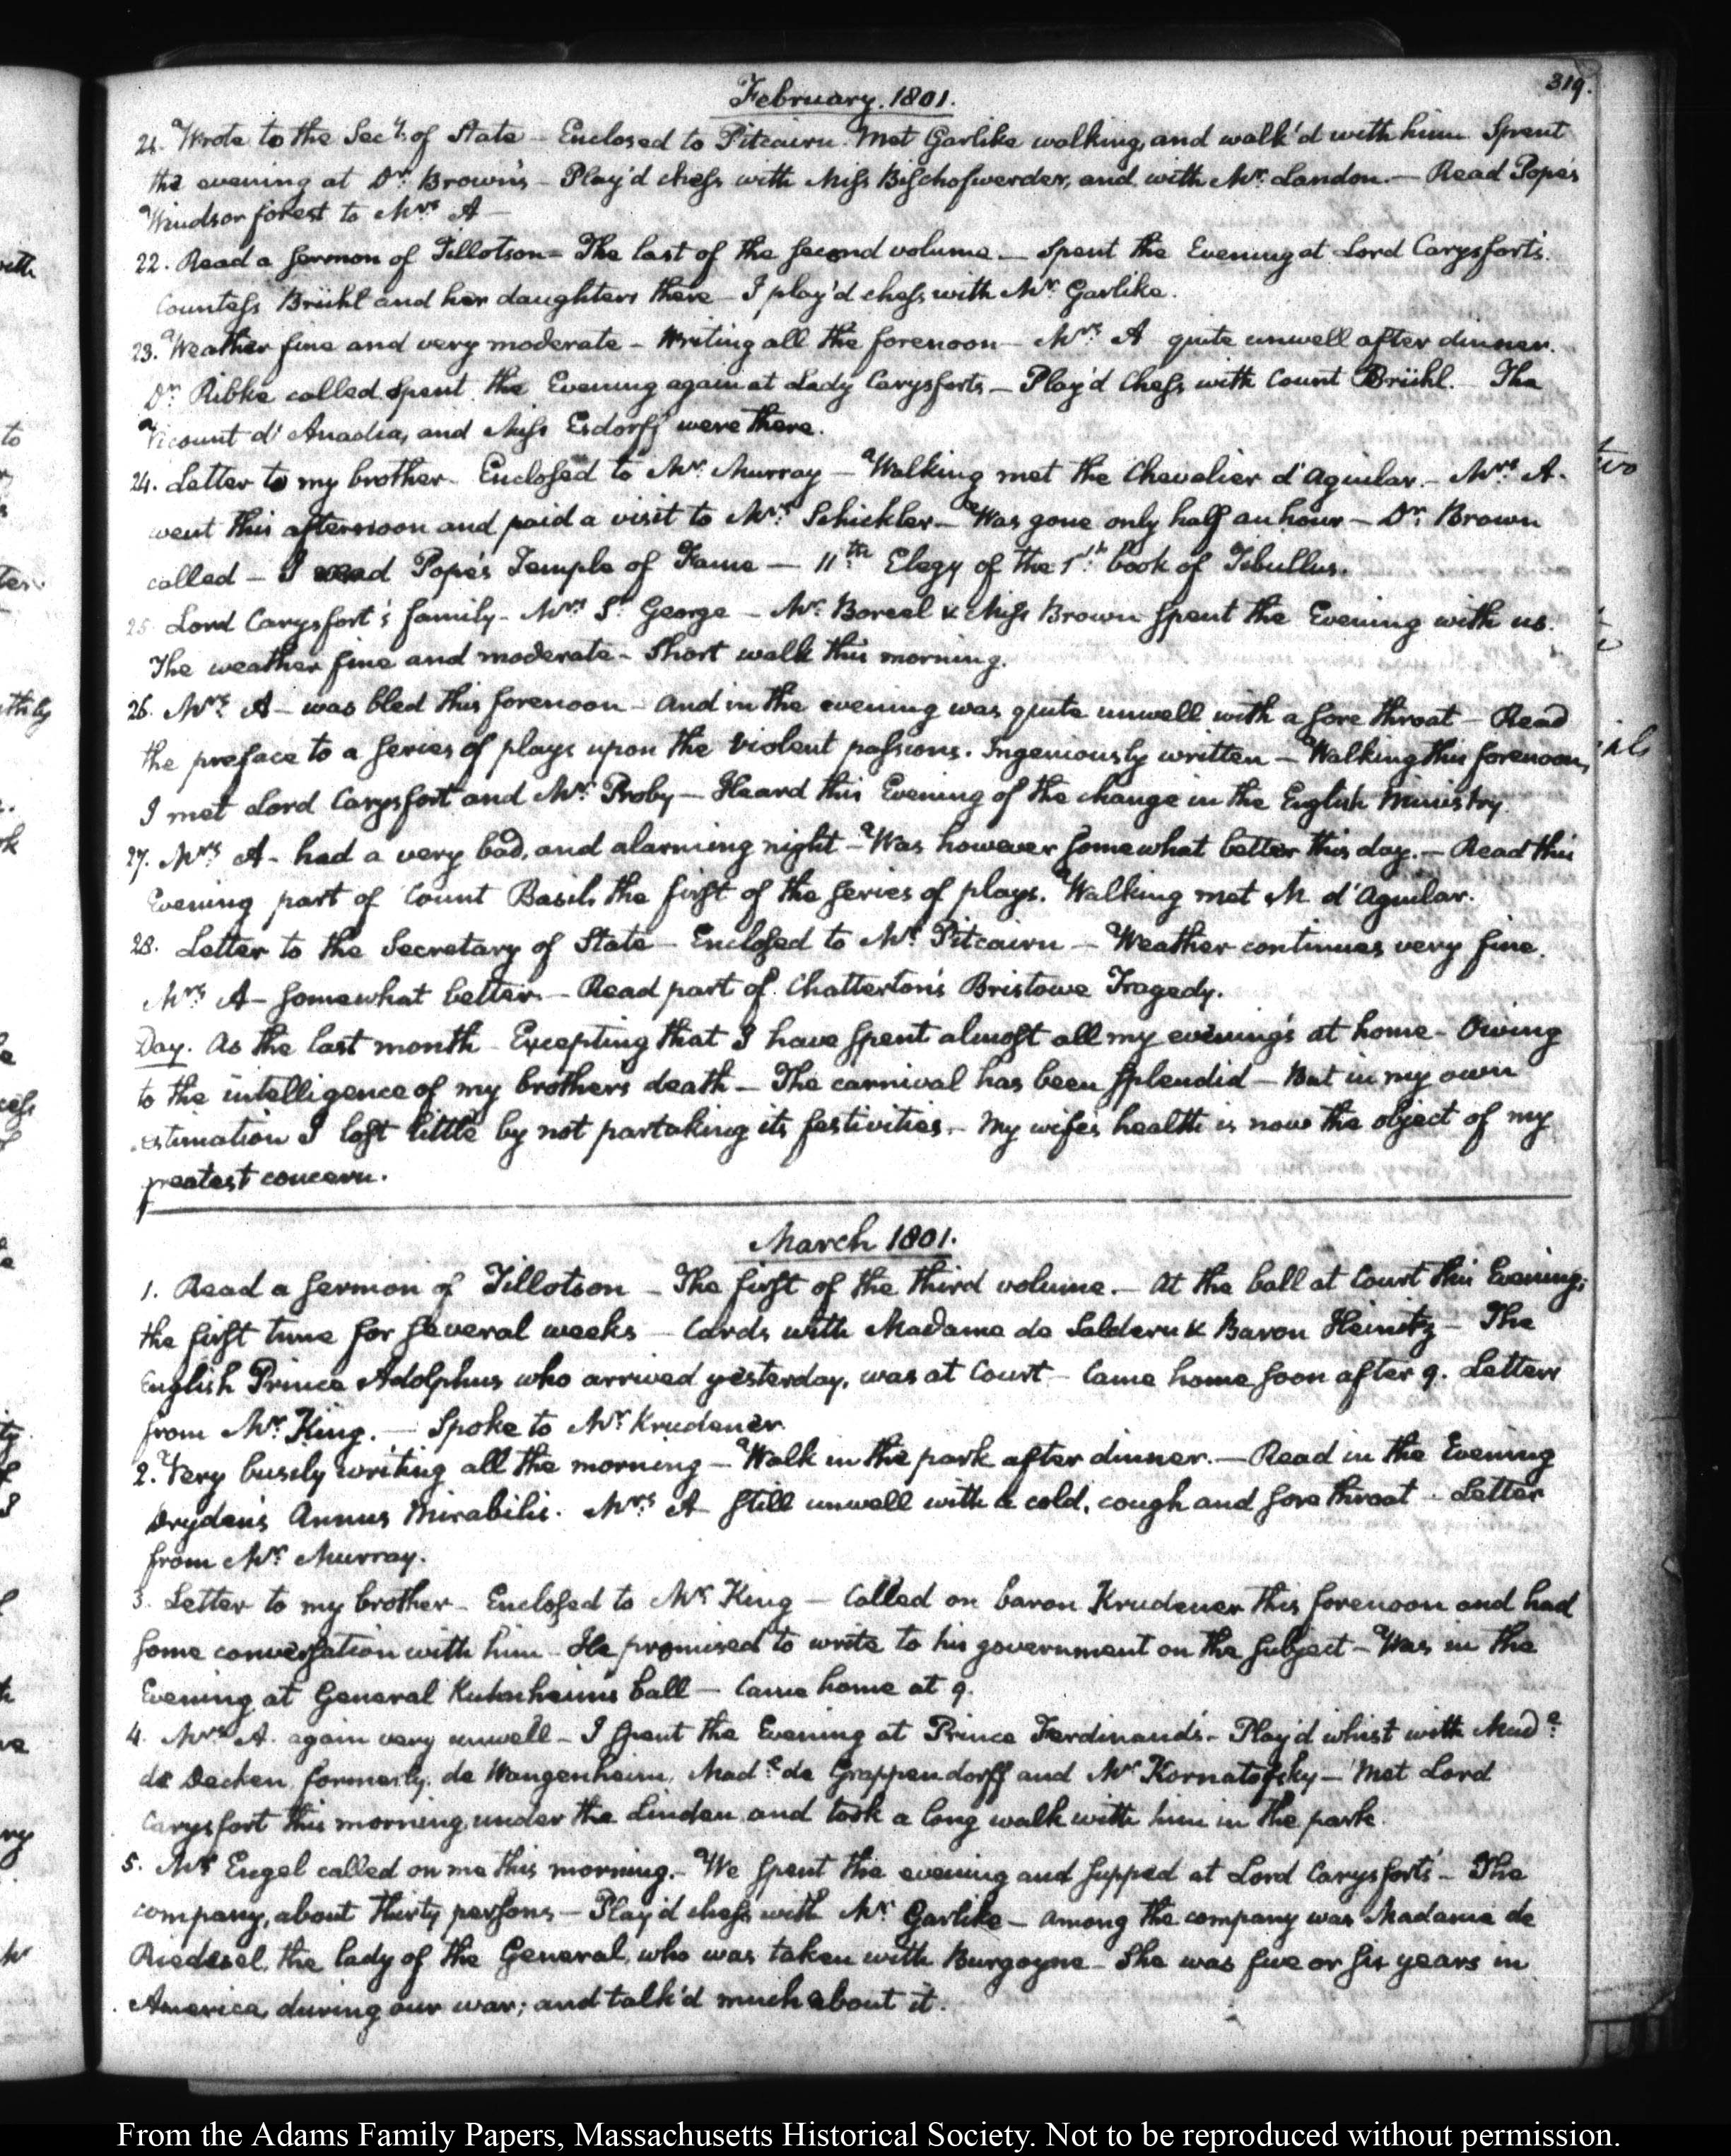 319.
February. 1801.
21. Wrote to the Secy: of State – Enclosed to Pitcairn. Met Garlike walking, and walk'd with him. Spent
the evening at Dr: Brown's – Play'd chess with Miss Bischofwerder, and with Mr: Landon. — Read Pope's
Windsor forest to Mrs A —
22. Read a sermon of Tillotson – The last of the second volume. — Spent the Evening at Lord Carysfort's.
Countess Brühl and her daughters there – I play'd chess with Mr: Garlike.
23. Weather fine and very moderate – Writing all the forenoon – Mrs: A quite unwell after dinner.
Dr: Ribke called. Spent the Evening again at Lady Carysforts – Play'd Chess with Count Brühl. – The
Vicount d'Anadia, and Miss Esdorff were there.
24. Letter to my brother – Enclosed to Mr: Murray — Walking met the Chevalier d'Aguilar. – Mrs A.
went this afternoon and paid a visit to Mrs: Schickler – Was gone only half an hour – Dr: Brown
called – I read Pope's Temple of Fame — 11th: Elegy of the 1st: book of Tibullus.
25. Lord Carysfort's family – Mrs: St George – Mr: Boreel & Miss Brown spent the Evening with us.
The weather fine and moderate – Short walk this morning.
26. Mrs: A – was bled this forenoon – and in the evening was quite unwell with a sore throat – Read
the preface to a series of plays upon the violent passions. Ingeniously written – Walking this forenoon,
I met Lord Carysfort and Mr: Proby – Heard this Evening of the change in the English Ministry.
27. Mrs A – had a very bad, and alarming night – Was however somewhat better this day. – Read this
Evening part of Count Basil, the first of the series of plays. Walking met M. d'Aguilar.
28. Letter to the Secretary of State – Enclosed to Mr: Pitcairn – Weather continues very fine.
Mrs A – somewhat better. – Read part of Chatterton's Bristowe Tragedy.
Day. As the last month – Excepting that I have spent almost all my evenings at home – Owing
to the intelligence of my brothers death – The carnival has been splendid – But in my own
estimation I lost little by not partaking its festivities. – My wife's health is now the object of my
greatest concern.
March 1801.
1. Read a sermon of Tillotson – The first of the third volume. – At the ball at Court this Evening;
the first time for several weeks – Cards with Madame de Saldern & Baron Heinitz – The
English Prince Adolphus who arrived yesterday, was at Court – Came home soon after 9. Letters
from Mr: King. — Spoke to Mr Krudener
2. Very busily writing all the morning – Walk in the park after dinner. — Read in the Evening
Dryden's Annus Mirabilis. Mrs A still unwell with a cold, cough and sore throat – Letter
from Mr Murray.
3. Letter to my brother – Enclosed to Mr King – Called on baron Krudener this forenoon and had
some conversation with him – He promised to write to his government on the subject – Was in the
Evening at General Kuhnheim's ball – Came home at 9.
4. Mrs A. again very unwell – I spent the Evening at Prince Ferdinand's – Play'd whist with Made:
de Decken, formerly de Wangenheim, Made: de Grappendorff and Mr Kornatofsky – Met Lord
Carysfort this morning, under the Linden and took a long walk with him in the park.
5. Mr Engel called on me this morning. – We spent the evening and supped at Lord Carysforts – The
company, about thirty persons – Play'd chess with Mr Garlike – Among the company was Madame de
Riedesel, the lady of the General, who was taken with Burgoyne – She was five or six years in
America, during our war; and talk'd much about it.
From the Adams Family Papers, Massachusetts Historical Society. Not to be reproduced without permission.